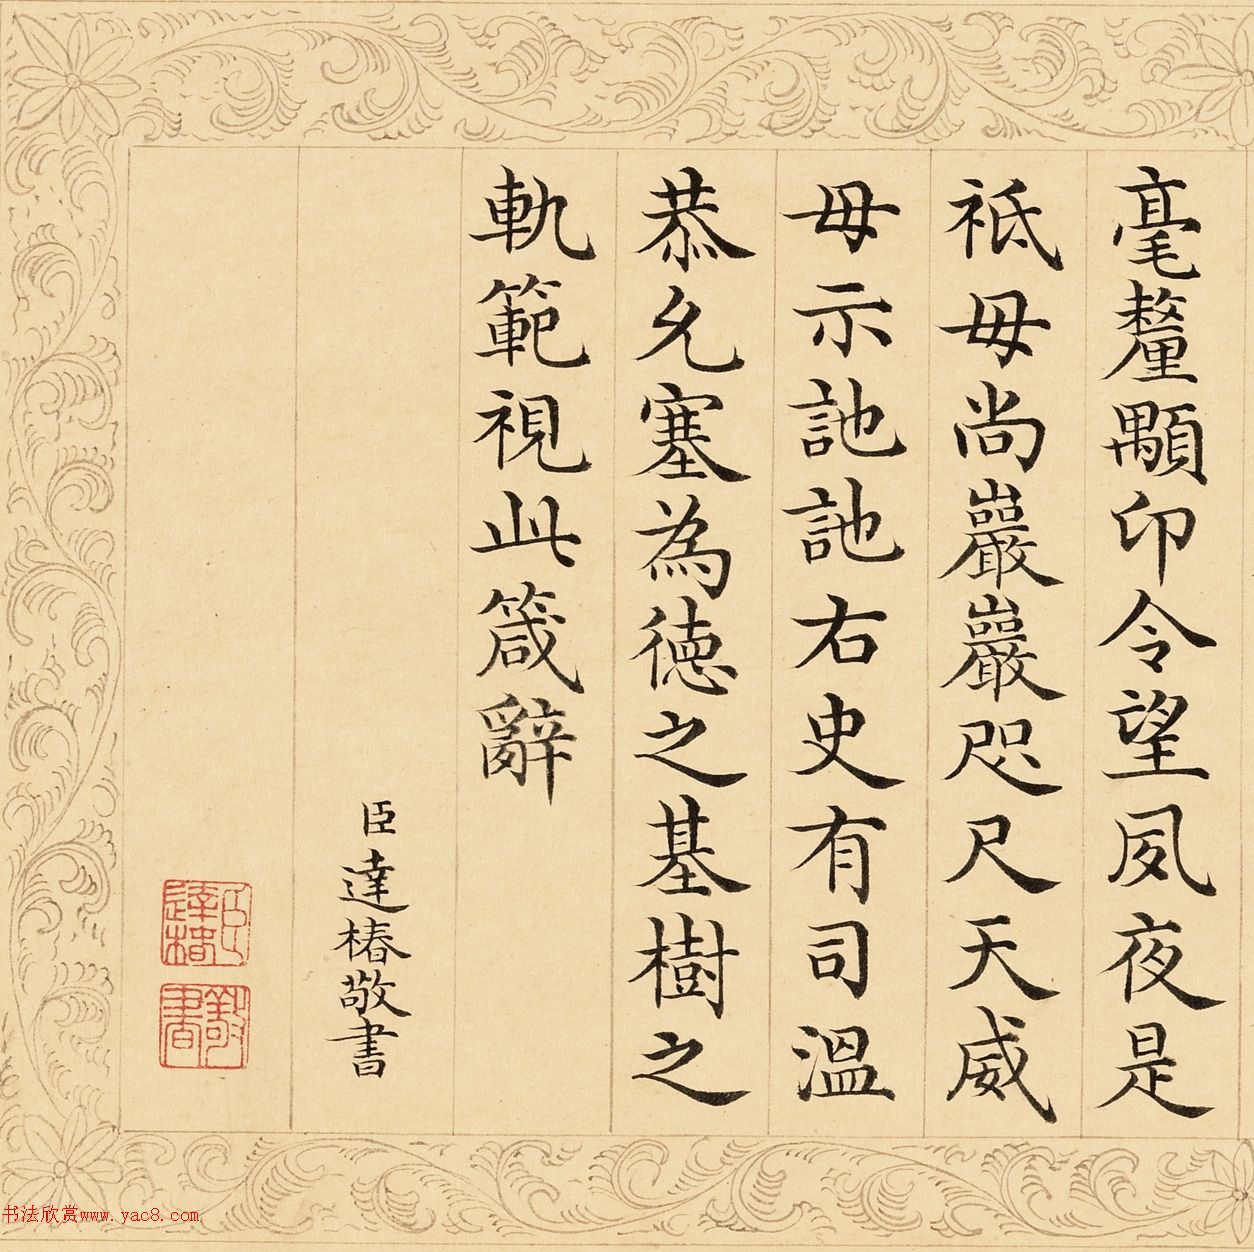 毫釐顒卬令望夙夜是
祗毋尚巖巖咫尺天威
毋示訑訑右史有司溫
恭允塞為德之基樹之
軌範視此箴辭
臣達椿敬書
臣達椿
敬書
书法欣赏www.yac8.com